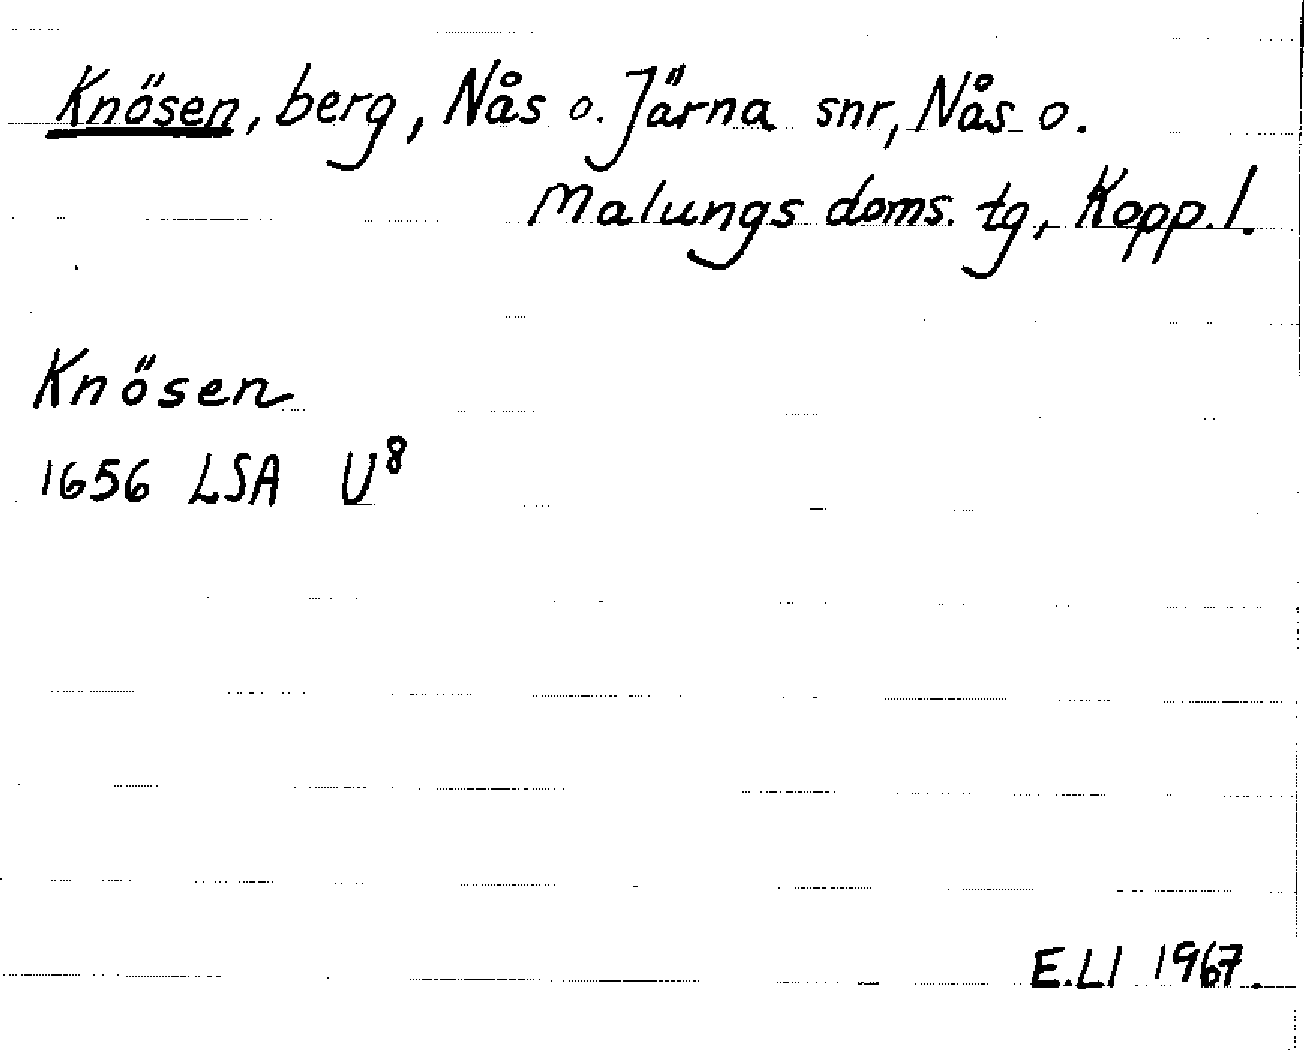 Knösen, berg, Nås o. Järna snr, Nås o.
Malungs doms. tg, Kopp. l.
Knösen
1656 LSA U⁸
E.Ll 1967.